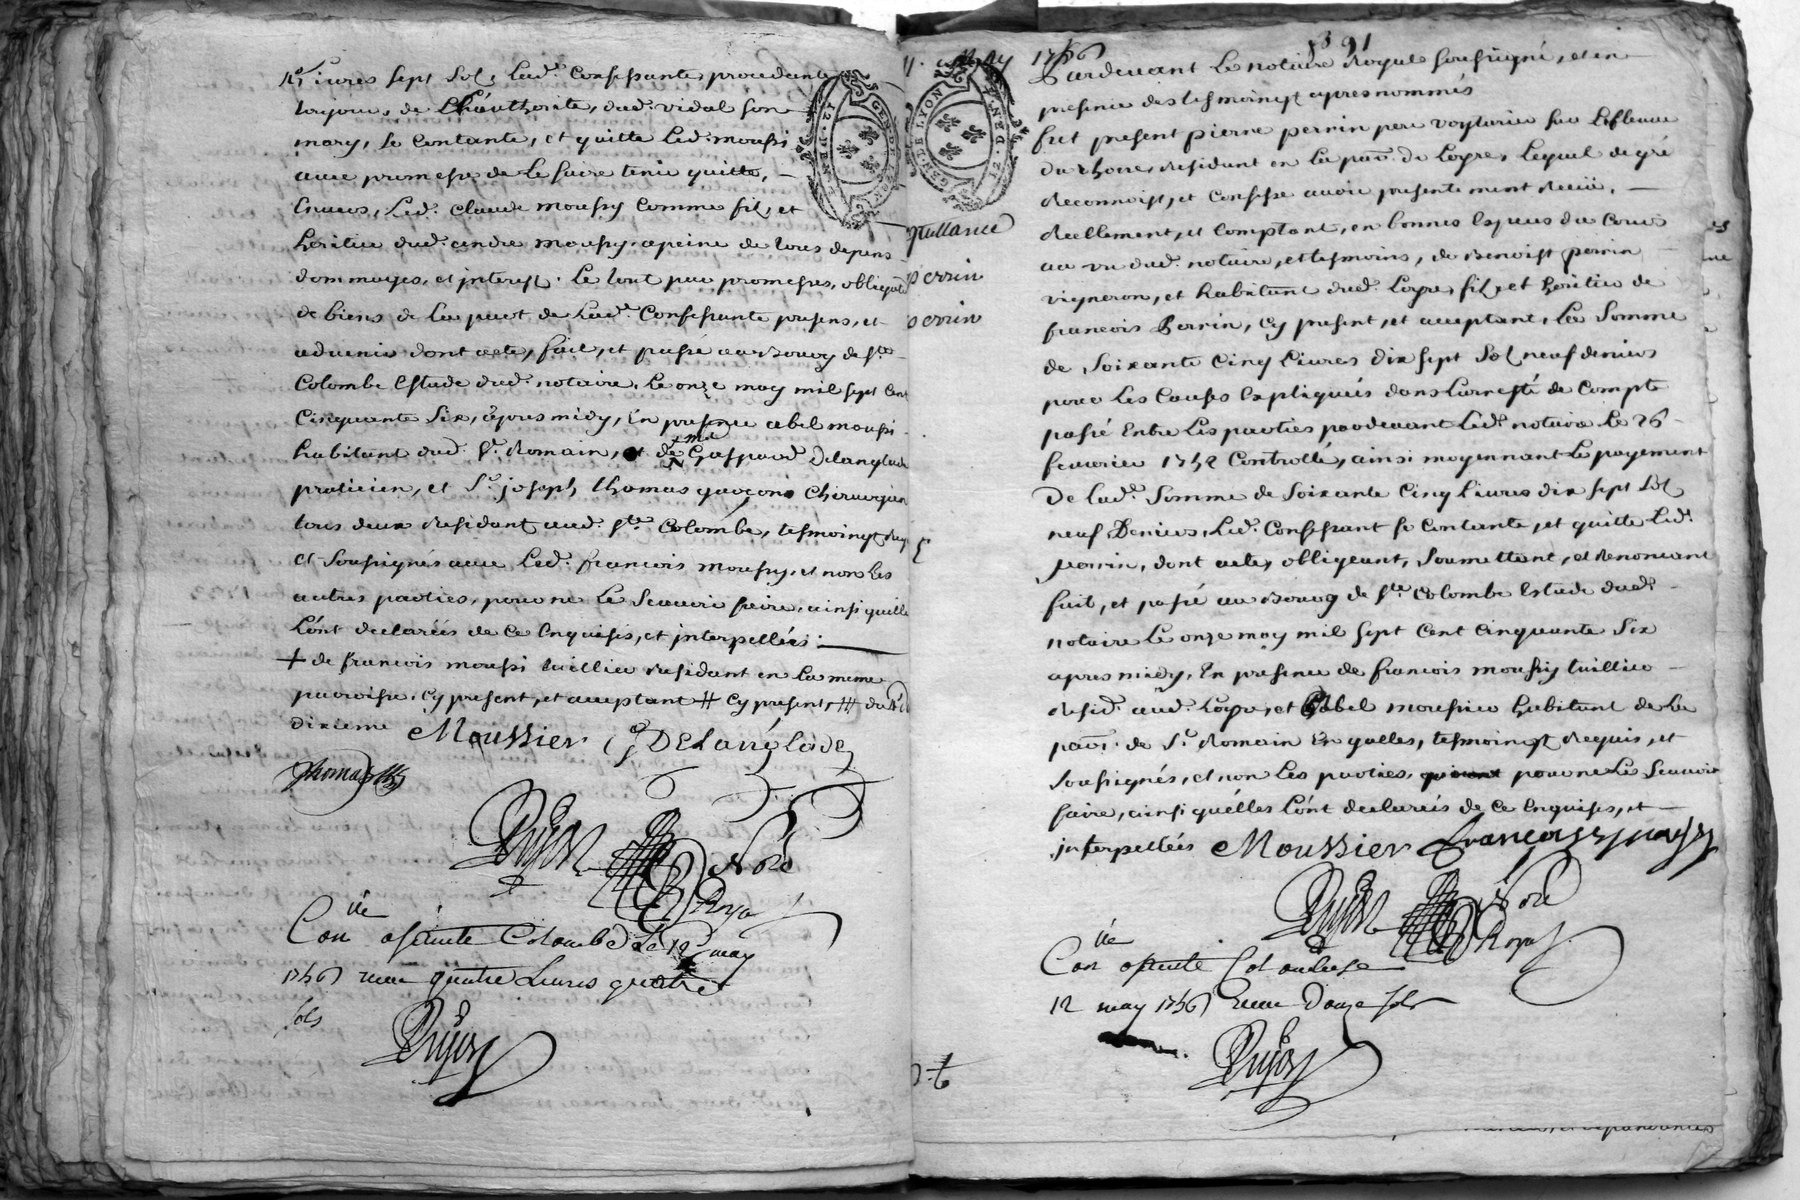 Livres sept sols, lad. Confessante, procedante
toujours, de l'hauthorité, dud. vidal son
mary, se contante, et quitte led. moussi
avec promesse de le faire tenir quitte,
Envers, led. claude moussy comme fils, et
heritier dud. andre moussy, a peine de tous depens
dommages, et interest. le tout par promesses, obligaõn
de biens de la part de lad. Confessante presens, et
advenir dont acte, fait, et passé au Bourg de ste
Colombe Estude dud. notaire, le onze may mil sept cent
cinquante six, apres midy, En presence abel moussi
habitant dud. st. Romain, et de me Gaspard Delanglade
praticien, et sr. joseph thomas garçon Chirurgien
tous deux residant aud. ste. Colombe, tesmoings
et soussignés avec led. françois moussy, et non les
autres parties, pour ne le scavoir faire, ainsi quille
l'ont declarées de ce enquises, et interpellées.
+ de francois moussi tuillier residant en la meme
parroisse, cy present, et acceptant # cy present, ## du
dixieme Moussier G DELanglade
thomas
Dujon Nore
Royal
Con lle a sainte Colombe Le 12 may
1756 recu quatre Livres quatre
sols
Dujon
11 May 1756
391
GEN. DE LYON
2 DEN
quittance
perrin
perrin
Pardevant le notaire Royal soussigné, et en
presence des tesmoings apres nommés
fut present pierre perrin pere voyturier sur le fleuve
du rhone, residant en la parr. de loyre, lequel de gré
reconnoist, et confesse avoir presentement receü,
reellement, et comptant, en bonnes especes du cours
au vu dud. notaire, et tesmoins, de Benoist perrin
vigneron, et habitant dud. loyre, fils, et heritier de
francois Perrin, cy present, et acceptant, la somme
de soixante cinq livres dix sept sols neuf deniers
pour les causes expliquées dans l'arresté de compte
passé Entre les parties pardevant led. notaire le 26
fevrier 1752 Controllé, ainsi moyennant le payement
De lad. somme de soixante cinq livres dix sept sols
neuf Deniers, led. Confessant se contante, et quitte led.
perrin, dont acte, obligeant, soumettant, et renoncant
fait, et passé au Bourg de ste. Colombe Estude dud.
notaire le onze may mil sept cent cinquante six
apres midy, En presence de francois moussy tuillier
resid. aud. loyre, et abel moussier habitant de la
parr. de st. Romain En galles, tesmoings requis, et
soussignés, et non les parties, pour ne le scavoir
faire, ainsi quélles l'ont declarées de ce enquises, et
interpellées Moussier françois
Dujon Nore
Royal
Con lle a sainte Colombe
12 may 1756 recu douze sols
Dujon